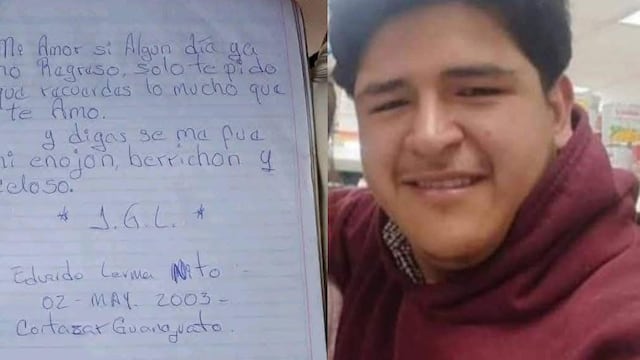 Me Amor si Algun día ya
no Regraso, solo te pido
que racuardas lo mucho que
te Amo.
y digas se ma fua
mi enojon, berrichon y
celoso.
* J.G.L. *
Eduardo Lerma Nito -
02 - MAY. 2003 -
Cortazar Guanajuato.